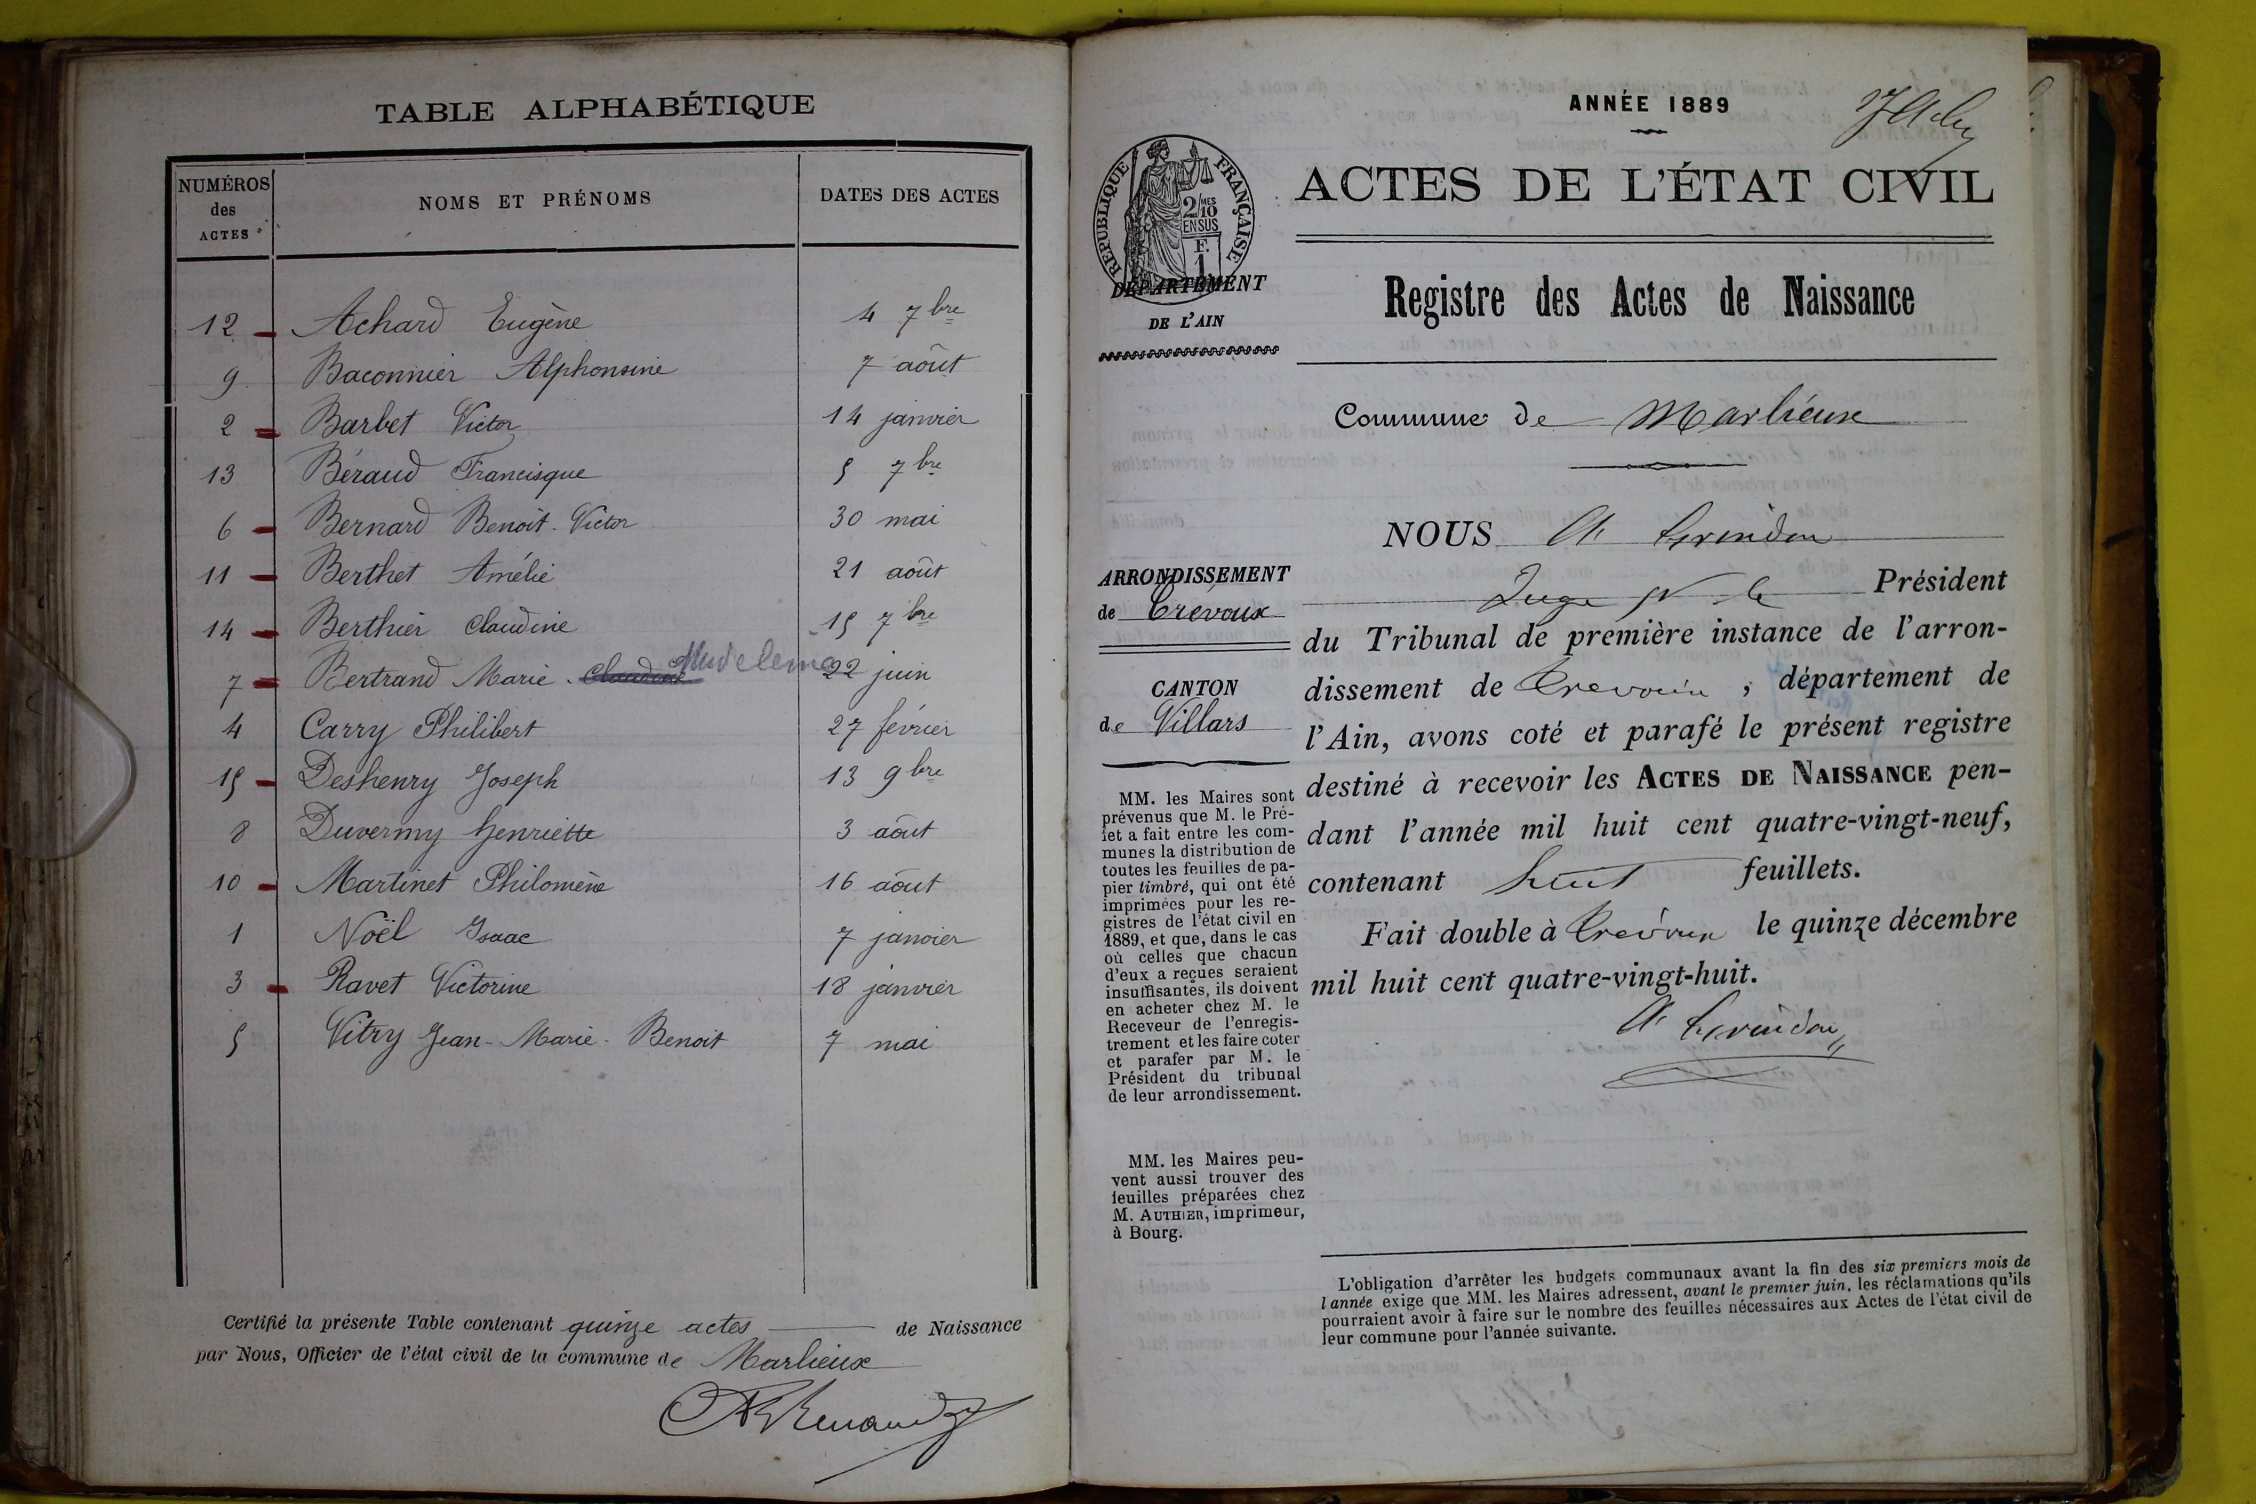 TABLE ALPHABÉTIQUE
NUMÉROS des ACTES NOMS ET PRÉNOMS DATES DES ACTES
12 Achard Eugène 4 7bre
9 Baconnier Alphonsine 7 août
2 Barbet Victor 14 janvier
13 Béraud Francisque 5 7bre
6 Bernard Benoit-Victor 30 mai
11 Berthet Amélie 21 août
14 Berthier Claudine 15 7bre
7 Bertrand Marie-Claudine Madeleine 22 juin
4 Carry Philibert 27 février
15 Deshenry Joseph 13 9bre
8 Duvermy henriette 3 août
10 Martinet Philomène 16 août
1 Noël Isaac 7 janvier
3 Ravet Victorine 18 janvier
5 Vitry Jean-Marie-Benoit 7 mai
Certifié la présente Table contenant quinze actes de Naissance
par Nous, Officier de l'état civil de la commune de Marlieux
ANNÉE 1889
ACTES DE L'ÉTAT CIVIL
RÉPUBLIQUE FRANÇAISE
2/10 MES
EN SUS
F.
1
DÉPARTEMENT
DE L'AIN
Registre des Actes de Naissance
Commune de Marlieux
NOUS
ARRONDISSEMENT
de Trévoux
CANTON
de Villars
Juge Président
du Tribunal de première instance de l'arron-
dissement de Trévoux, département de
l'Ain, avons coté et parafé le présent registre
destiné à recevoir les ACTES DE NAISSANCE pen-
dant l'année mil huit cent quatre-vingt-neuf,
contenant huit feuillets.
Fait double à Trévoux le quinze décembre
mil huit cent quatre-vingt-huit.
MM. les Maires sont
prévenus que M. le Pré-
fet a fait entre les com-
munes la distribution de
toutes les feuilles de pa-
pier timbré, qui ont été
imprimées pour les re-
gistres de l'état civil en
1889, et que, dans le cas
où celles que chacun
d'eux a reçues seraient
insuffisantes, ils doivent
en acheter chez M. le
Receveur de l'enregis-
trement et les faire coter
et parafer par M. le
Président du tribunal
de leur arrondissement.
MM. les Maires peu-
vent aussi trouver des
feuilles préparées chez
M. AUTHIER, imprimeur,
à Bourg.
L'obligation d'arrêter les budgets communaux avant la fin des six premiers mois de
l'année exige que MM. les Maires adressent, avant le premier juin, les réclamations qu'ils
pourraient avoir à faire sur le nombre des feuilles nécessaires aux Actes de l'état civil de
leur commune pour l'année suivante.